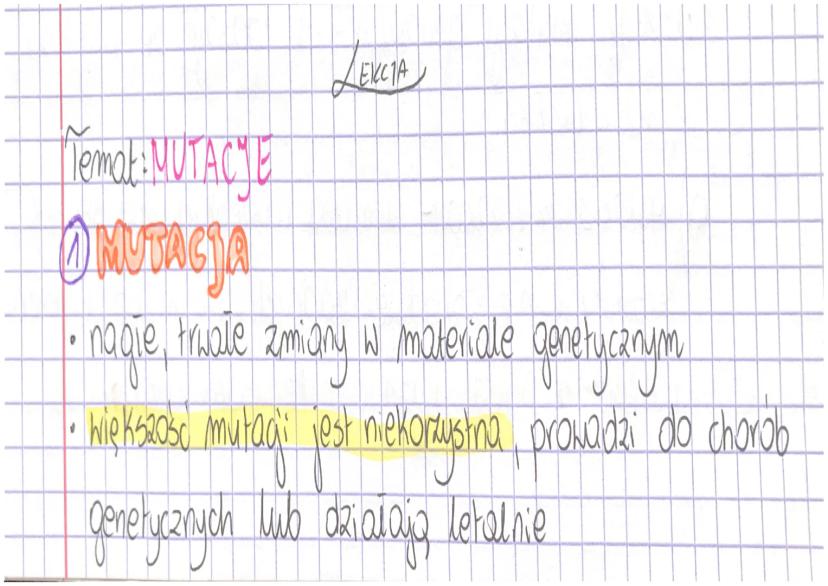 LEKCJA
Temat: MUTACJE
1 MUTACJA
• nagłe, trwałe zmiany w materiale genetycznym
• większość mutacji jest niekorzystna, prowadzi do chorób
genetycznych lub działają letalnie